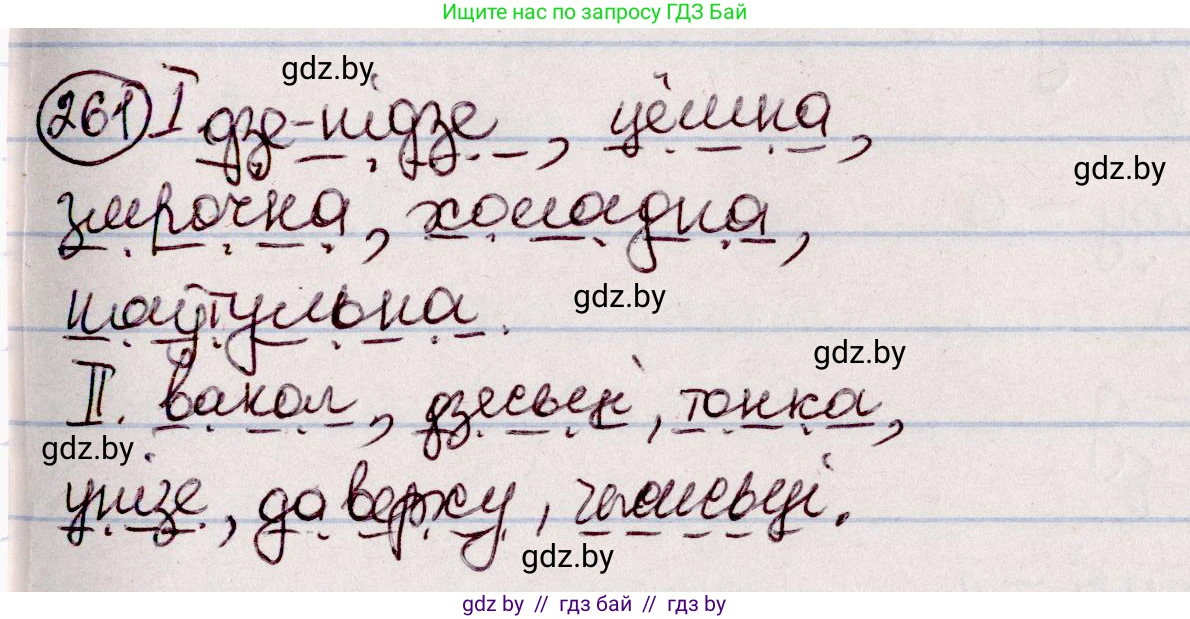 Ищите нас по запросу ГДЗ Бай
gdz.by
261 I дзе-нідзе, цёмна,
gdz.by
змрочна, холадна,
gdz.by
натульна.
gdz.by
II. вакол, дзесьці, тонка,
gdz.by
унізе, даверху, чымсьці.
gdz.by
gdz by // гдз бай // гдз by